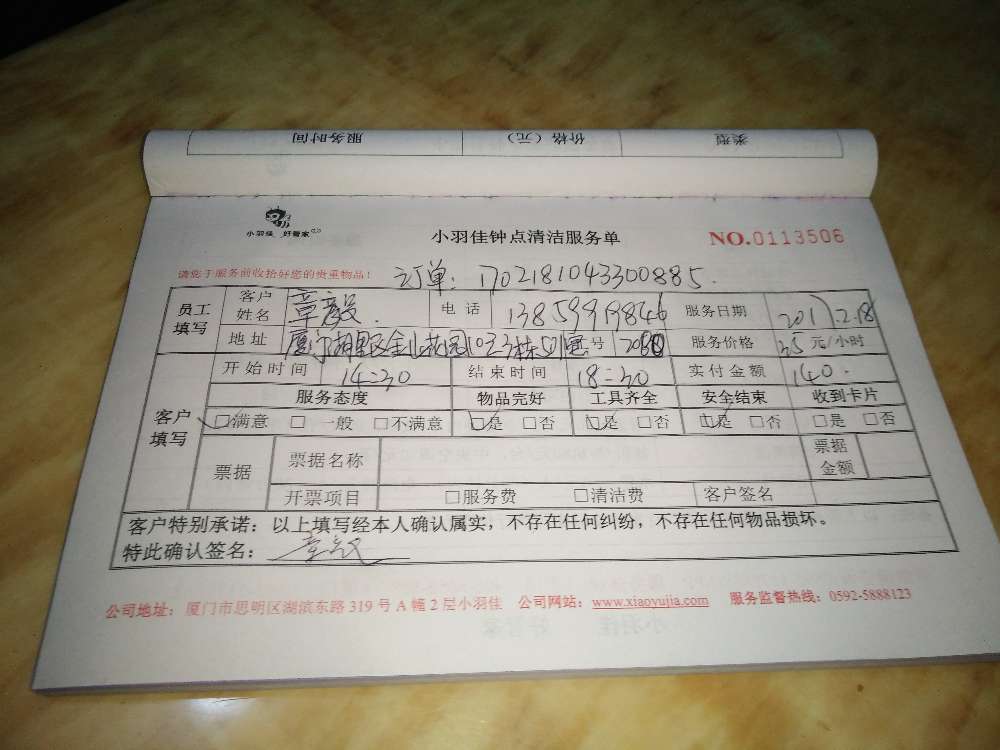 服务时间 价格（元） 类型
小羽佳 好管家
小羽佳钟点清洁服务单 NO.0113506
请您于服务前收拾好您的贵重物品！ 订单：1702181043300885.
员工填写 客户姓名 章毅. 电话 13859919846 服务日期 2017.2.18
地址 厦门湖里区金山花园 号 服务价格 35 元/小时
开始时间 14:30 结束时间 18:30 实付金额 140.
客户填写 服务态度 物品完好 工具齐全 安全结束 收到卡片
☑满意 □一般 □不满意 ☑是 □否 ☑是 □否 ☑是 □否 □是 □否
票据 票据名称 票据金额
开票项目 □服务费 □清洁费 客户签名
客户特别承诺：以上填写经本人确认属实，不存在任何纠纷，不存在任何物品损坏。
特此确认签名：章毅
公司地址：厦门市思明区湖滨东路 319 号 A 幢 2 层小羽佳 公司网站：www.xiaoyujia.com 服务监督热线：0592-5888123